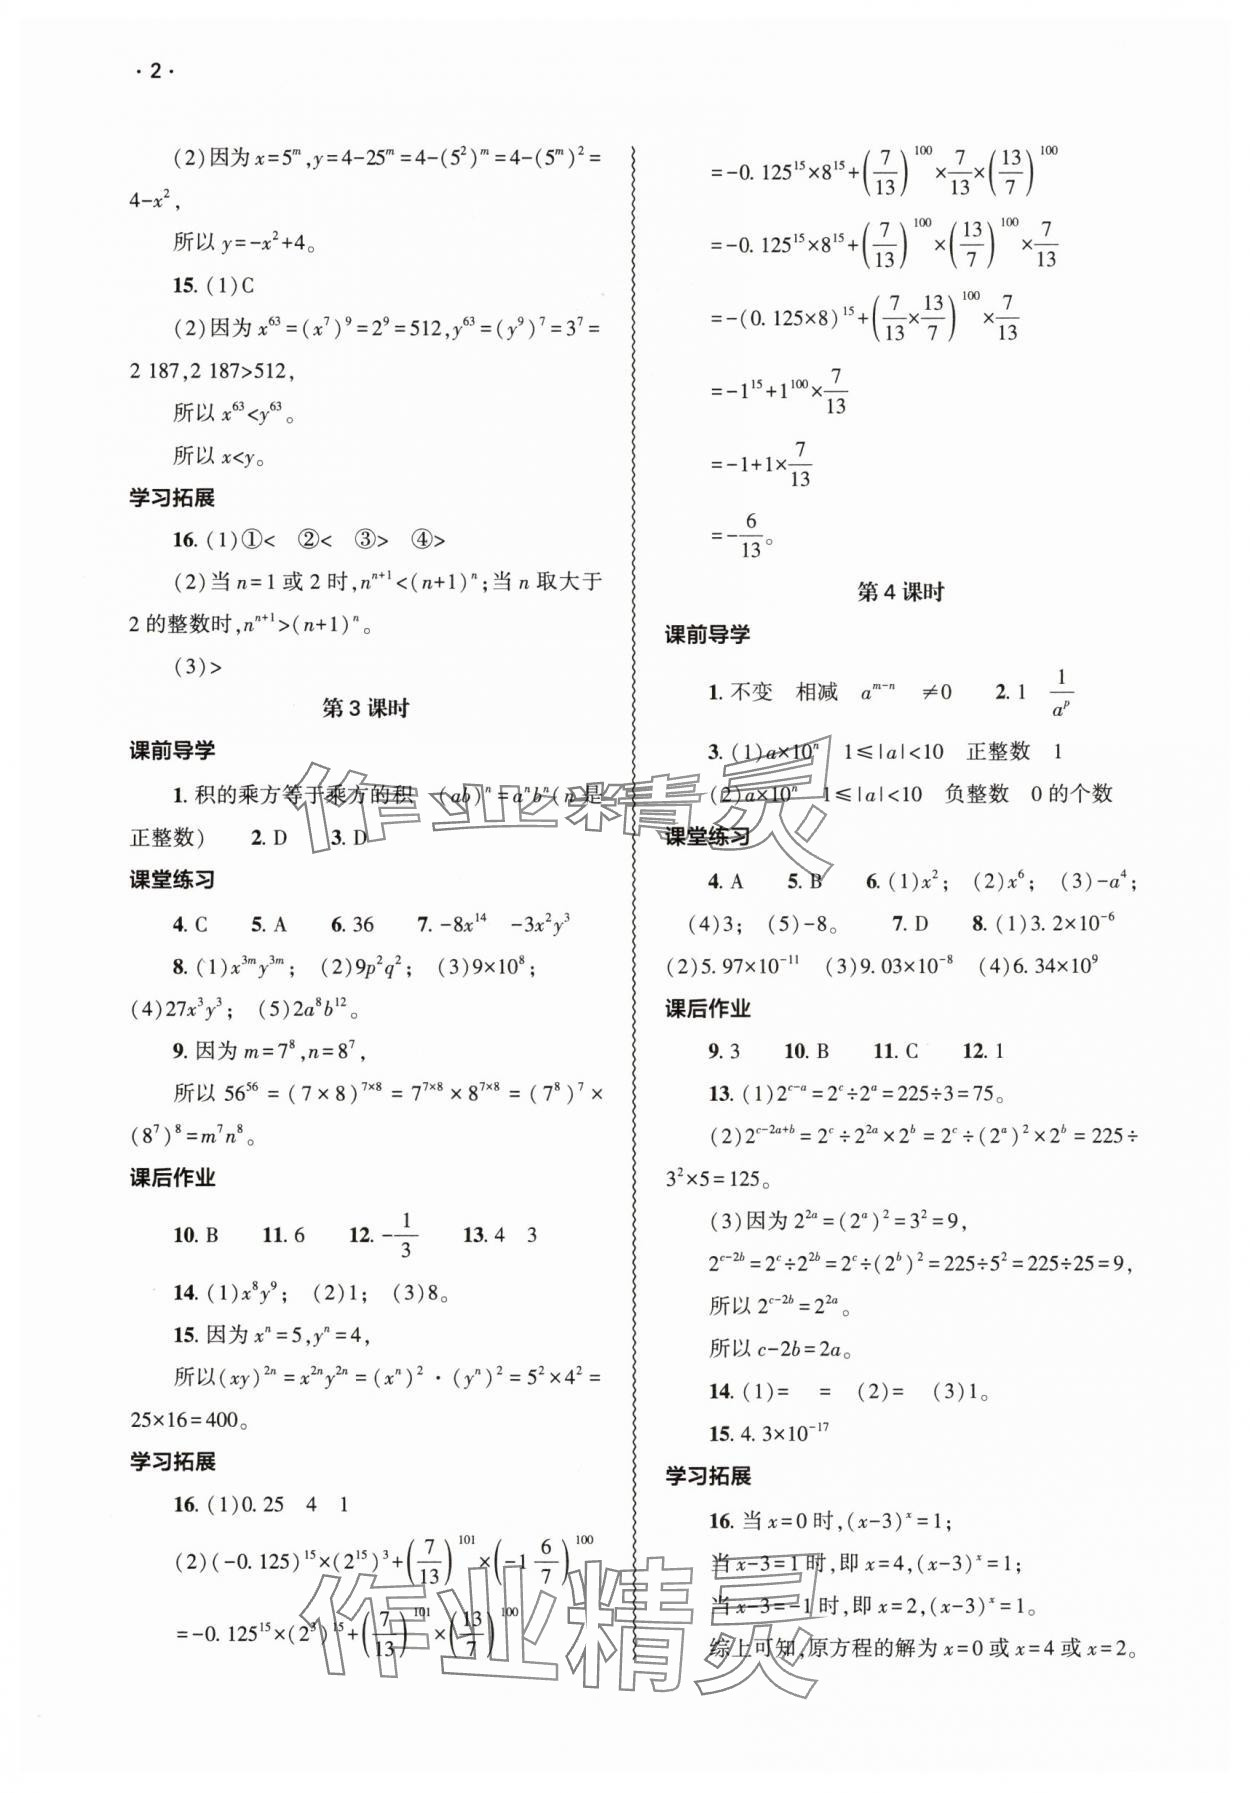 · 2 ·
(2)因为 x=5^m,y=4-25^m=4-(5^2)^m=4-(5^m)^2=
4-x^2,
所以 y=-x^2+4。
15. (1)C
(2)因为 x^63=(x^7)^9=2^9=512,y^63=(y^9)^7=3^7=
2 187,2 187>512,
所以 x^63<y^63。
所以 x<y。
学习拓展
16. (1)①< ②< ③> ④>
(2)当 n=1 或 2 时,n^(n+1)<(n+1)^n;当 n 取大于
2 的整数时,n^(n+1)>(n+1)^n。
(3)>
第 3 课时
课前导学
1. 积的乘方等于乘方的积 (ab)^n=a^n b^n(n 是
正整数) 2. D 3. D
课堂练习
4. C 5. A 6. 36 7. -8x^14 -3x^2y^3
8. (1)x^(3m)y^(3m); (2)9p^2q^2; (3)9×10^8;
(4)27x^3y^3; (5)2a^8b^12。
9. 因为 m=7^8,n=8^7,
所以 56^56=(7×8)^(7×8)=7^(7×8)×8^(7×8)=(7^8)^7×
(8^7)^8=m^7n^8。
课后作业
10. B 11. 6 12. -1/3 13. 4 3
14. (1)x^8y^9; (2)1; (3)8。
15. 因为 x^n=5,y^n=4,
所以(xy)^(2n)=x^(2n)y^(2n)=(x^n)^2·(y^n)^2=5^2×4^2=
25×16=400。
学习拓展
16. (1)0.25 4 1
(2)(-0.125)^15×(2^15)^3+(7/13)^101×(-1 6/7)^100
=-0.125^15×(2^3)^15+(7/13)^101×(13/7)^100
=-0.125^15×8^15+(7/13)^100×7/13×(13/7)^100
=-0.125^15×8^15+(7/13)^100×(13/7)^100×7/13
=-(0.125×8)^15+(7/13×13/7)^100×7/13
=-1^15+1^100×7/13
=-1+1×7/13
=-6/13。
第 4 课时
课前导学
1. 不变 相减 a^(m-n) ≠0 2. 1 1/a^p
3. (1)a×10^n 1≤|a|<10 正整数 1
(2)a×10^n 1≤|a|<10 负整数 0 的个数
课堂练习
4. A 5. B 6. (1)x^2; (2)x^6; (3)-a^4;
(4)3; (5)-8。 7. D 8. (1)3.2×10^-6
(2)5.97×10^-11 (3)9.03×10^-8 (4)6.34×10^9
课后作业
9. 3 10. B 11. C 12. 1
13. (1)2^(c-a)=2^c÷2^a=225÷3=75。
(2)2^(c-2a+b)=2^c÷2^(2a)×2^b=2^c÷(2^a)^2×2^b=225÷
3^2×5=125。
(3)因为 2^(2a)=(2^a)^2=3^2=9,
2^(c-2b)=2^c÷2^(2b)=2^c÷(2^b)^2=225÷5^2=225÷25=9,
所以 2^(c-2b)=2^(2a)。
所以 c-2b=2a。
14. (1)= = (2)= (3)1。
15. 4.3×10^-17
学习拓展
16. 当 x=0 时,(x-3)^x=1;
当 x-3=1 时,即 x=4,(x-3)^x=1;
当 x-3=-1 时,即 x=2,(x-3)^x=1。
综上可知,原方程的解为 x=0 或 x=4 或 x=2。
作业精灵
作业精灵